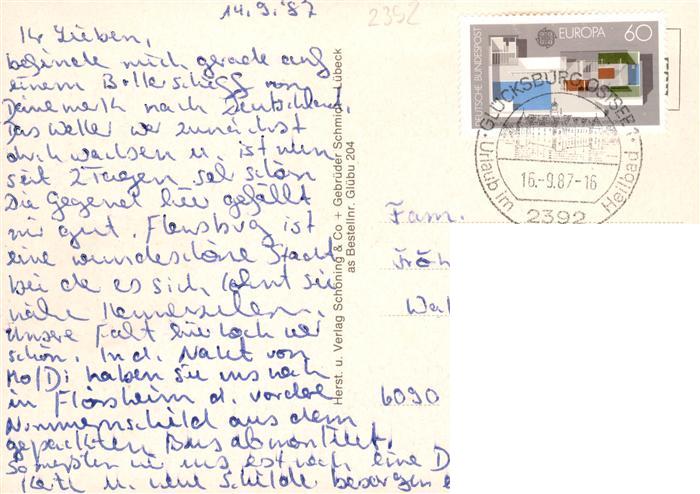 14.9.'87
2352
Ihr Lieben,
befinde mich gerade auf
einem Butterschiff von
Dänemark nach Deutschland.
Das Wetter war zunächst
durchwachsen u. ist nun
seit 2 Tagen sehr schön
Die Gegend hier gefällt
mir gut. Flensburg ist
eine wunderschöne Stadt
bei de es sich lohnt sie
näher kennenzulernen.
Unsere Fahrt hierhoch war
schön. In d. Nacht von
Mo/Di haben sie uns noch
in Flörsheim d. vordere
Nummernschild aus dem
gepackten Bus abmontiert.
So mußten wir uns erst noch eine D
Karte u. neue Schilder besorgen
Herst. u. Verlag Schöning & Co + Gebrüder Schmidt, Lübeck
as Bestellnr. Glübu 204
DEUTSCHE BUNDESPOST
EUROPA 60
GLÜCKSBURG, OSTSEE 1
Urlaub im Heilbad
16.-9.87-16
2392
Fam.
Fröh
Wal
6090